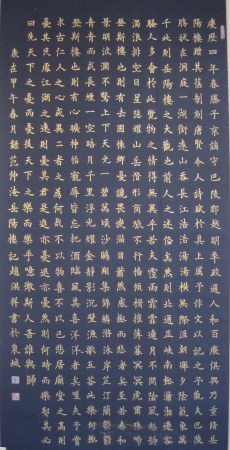 慶曆四年春滕子京謫守巴陵郡越明年政通人和百廢俱興乃重修岳
陽樓增其舊制刻唐賢今人詩賦於其上屬予作文以記之予觀夫巴陵
勝狀在洞庭一湖銜遠山吞長江浩浩湯湯橫無際涯朝暉夕陰氣象萬
千此則岳陽樓之大觀也前人之述備矣然則北通巫峽南極瀟湘遷客
騷人多會於此覽物之情得無異乎若夫霪雨霏霏連月不開陰風怒號
濁浪排空日星隱耀山岳潛形商旅不行檣傾楫摧薄暮冥冥虎嘯猿啼
登斯樓也則有去國懷鄉憂讒畏譏滿目蕭然感極而悲者矣至若春和
景明波瀾不驚上下天光一碧萬頃沙鷗翔集錦鱗游泳岸芷汀蘭郁郁
青青而或長煙一空皓月千里浮光耀金靜影沉璧漁歌互答此樂何極
登斯樓也則有心曠神怡寵辱皆忘把酒臨風其喜洋洋者矣嗟夫予嘗
求古仁人之心或異二者之為何哉不以物喜不以己悲居廟堂之高則
憂其民處江湖之遠則憂其君是進亦憂退亦憂然則何時而樂耶其必
曰先天下之憂而憂後天下之樂而樂乎噫微斯人吾誰與歸
歲在午春月錄范仲淹岳陽樓記趙洪祥書於泉城